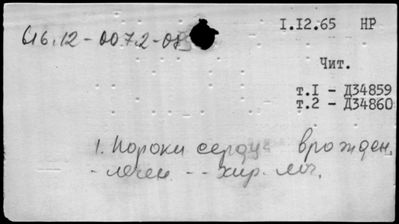 616.12-007.2-08
I.12.65 НР
Чит.
т.I - Д34859
т.2 - Д34860
1. Пороки сердц врожден.
- лечен. -- хир.